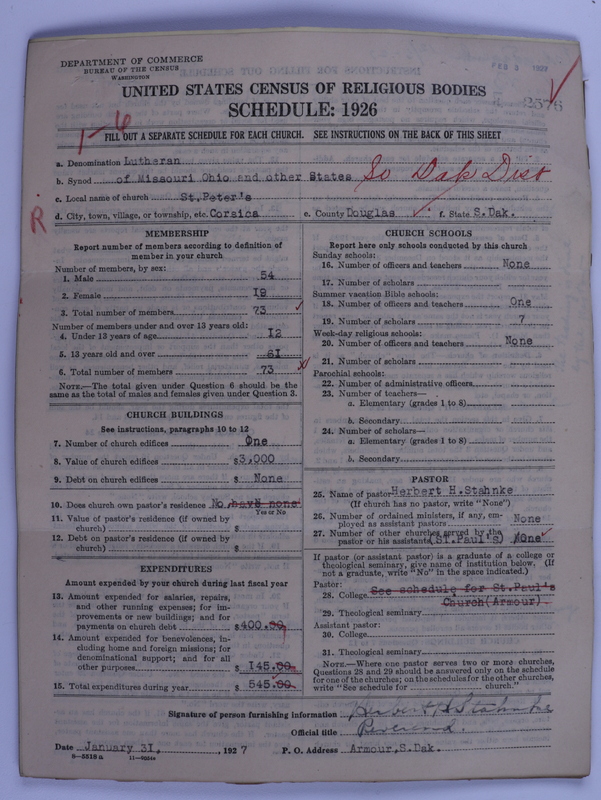 DEPARTMENT OF COMMERCE
BUREAU OF THE CENSUS
WASHINGTON
FEB 3 1927
2576
UNITED STATES CENSUS OF RELIGIOUS BODIES
SCHEDULE: 1926
1-6
FILL OUT A SEPARATE SCHEDULE FOR EACH CHURCH. SEE INSTRUCTIONS ON THE BACK OF THIS SHEET
a. Denomination Lutheran
b. Synod of Missouri Ohio and other States So Dak Dist
c. Local name of church St.Peter's
R
d. City, town, village, or township, etc. Corsica e. County Douglas f. State S.Dak.
MEMBERSHIP
Report number of members according to definition of
member in your church
Number of members, by sex:
1. Male 54
2. Female 19
3. Total number of members 73
Number of members under and over 13 years old:
4. Under 13 years of age 12
5. 13 years old and over 61
6. Total number of members 73
NOTE.—The total given under Question 6 should be the
same as the total of males and females given under Question 3.
CHURCH BUILDINGS
See instructions, paragraphs 10 to 12
7. Number of church edifices One
8. Value of church edifices $3,000
9. Debt on church edifices $ None
10. Does church own pastor's residence No, have none
Yes or No
11. Value of pastor's residence (if owned by
church) $
12. Debt on pastor's residence (if owned by
church) $
EXPENDITURES
Amount expended by your church during last fiscal year
13. Amount expended for salaries, repairs,
and other running expenses; for im-
provements or new buildings; and for
payments on church debt $400.00
14. Amount expended for benevolences, in-
cluding home and foreign missions; for
denominational support; and for all
other purposes $ 145.00
15. Total expenditures during year $ 545.00
CHURCH SCHOOLS
Report here only schools conducted by this church
Sunday schools:
16. Number of officers and teachers None
17. Number of scholars
Summer vacation Bible schools:
18. Number of officers and teachers One
19. Number of scholars 7
Week-day religious schools:
20. Number of officers and teachers None
21. Number of scholars
Parochial schools:
22. Number of administrative officers
23. Number of teachers—
a. Elementary (grades 1 to 8)
b. Secondary
24. Number of scholars—
a. Elementary (grades 1 to 8)
b. Secondary
PASTOR
25. Name of pastor Herbert H.Stahnke
(If church has no pastor, write "None")
26. Number of ordained ministers, if any, em-
ployed as assistant pastors None
27. Number of other churches served by the
pastor or his assistants (St.Paul's) One
If pastor (or assistant pastor) is a graduate of a college or
theological seminary, give name of institution below. (If
not a graduate, write "No" in the space indicated.)
Pastor:
28. College See schedule for St.Paul's
Church(Armour).
29. Theological seminary
Assistant pastor:
30. College
31. Theological seminary
NOTE.—Where one pastor serves two or more churches,
Questions 28 and 29 should be answered only on the schedule
for one of the churches; on the schedules for the other churches,
write "See schedule for church."
Signature of person furnishing information Herbert H Stahnke
Official title Reverend.
Date January 31, 1927 P. O. Address Armour,S.Dak.
8—5518 a